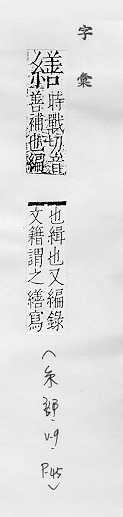 字彙
繕 時戰切音
善補也編
也緝也又編錄
文籍謂之繕寫
(糸部-V.9-P.45)